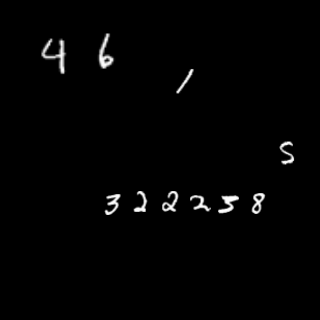 46
/
S
322258